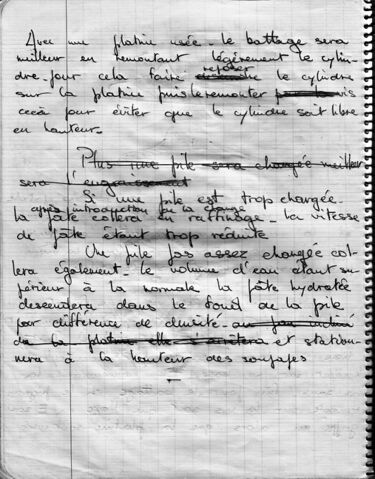 Avec une platine usée - le battage sera
meilleur en remontant légèrement le cylin-
dre - pour cela faire reposer le cylindre
sur la platine puis le remonter
ceci pour éviter que le cylindre soit libre
en hauteur -
Plus une pile sera chargée meilleur
sera l'engraissement
Si une pile est trop chargée -
après introduction de la charge
la pâte collera en raffinage - la vitesse
de pâte étant trop réduite
Une pile pas assez chargée col-
lera également - le volume d'eau étant su-
périeur à la normale la pâte hydratée
descendra dans le fond de la pile
par différence de densité -
de la platine elle s'arrêtera et station-
nera à la hauteur des